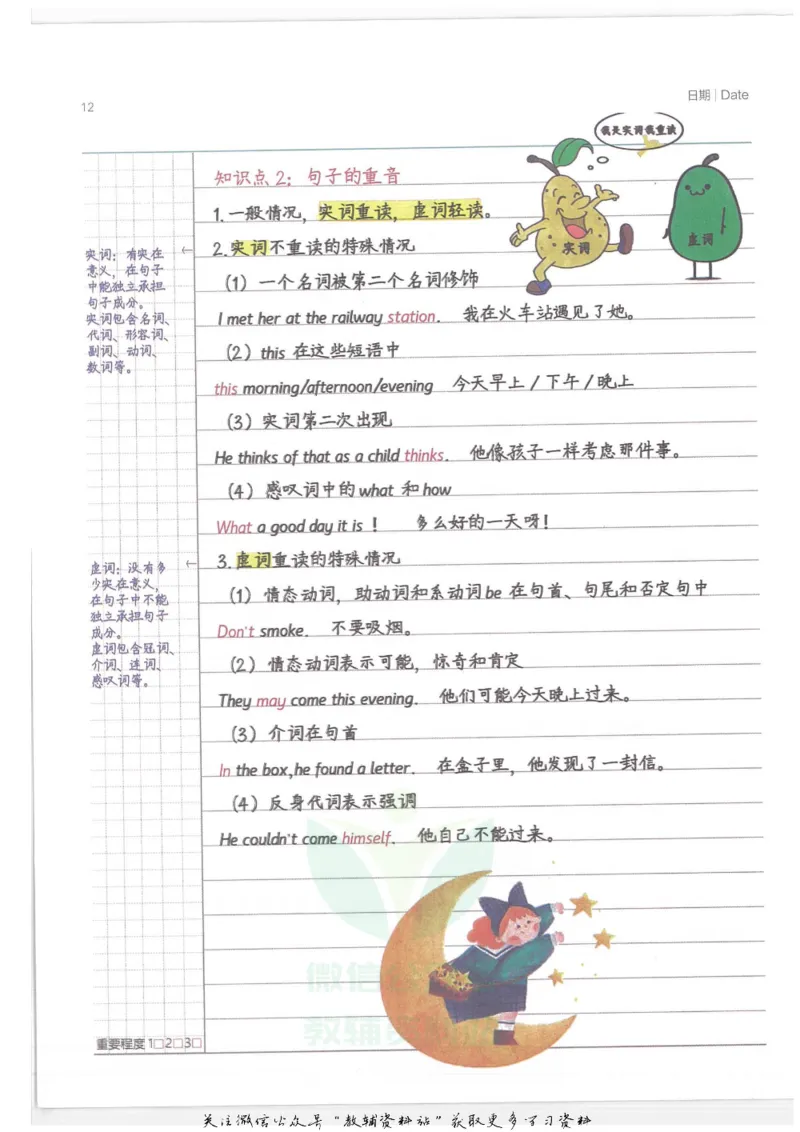 12
日期 | Date
我是实词我重读
实词
虚词
知识点 2：句子的重音
1.一般情况，实词重读，虚词轻读。
2.实词不重读的特殊情况
（1）一个名词被第二个名词修饰
I met her at the railway station. 我在火车站遇见了她。
（2）this 在这些短语中
this morning/afternoon/evening 今天早上/下午/晚上
（3）实词第二次出现
He thinks of that as a child thinks. 他像孩子一样考虑那件事。
（4）感叹词中的what 和how
What a good day it is！ 多么好的一天呀！
3.虚词重读的特殊情况
（1）情态动词，助动词和系动词be 在句首、句尾和否定句中
Don't smoke. 不要吸烟。
（2）情态动词表示可能，惊奇和肯定
They may come this evening. 他们可能今天晚上过来。
（3）介词在句首
In the box,he found a letter. 在盒子里，他发现了一封信。
（4）反身代词表示强调
He couldn't come himself. 他自己不能过来。
实词：有实在
意义，在句子
中能独立承担
句子成分。
实词包含名词、
代词、形容词、
副词、动词、
数词等。
虚词：没有多
少实在意义，
在句子中不能
独立承担句子
成分。
虚词包含冠词、
介词、连词、
感叹词等。
微信
教辅
重要程度 1□2□3□
关注微信公众号“教辅资料站”获取更多学习资料